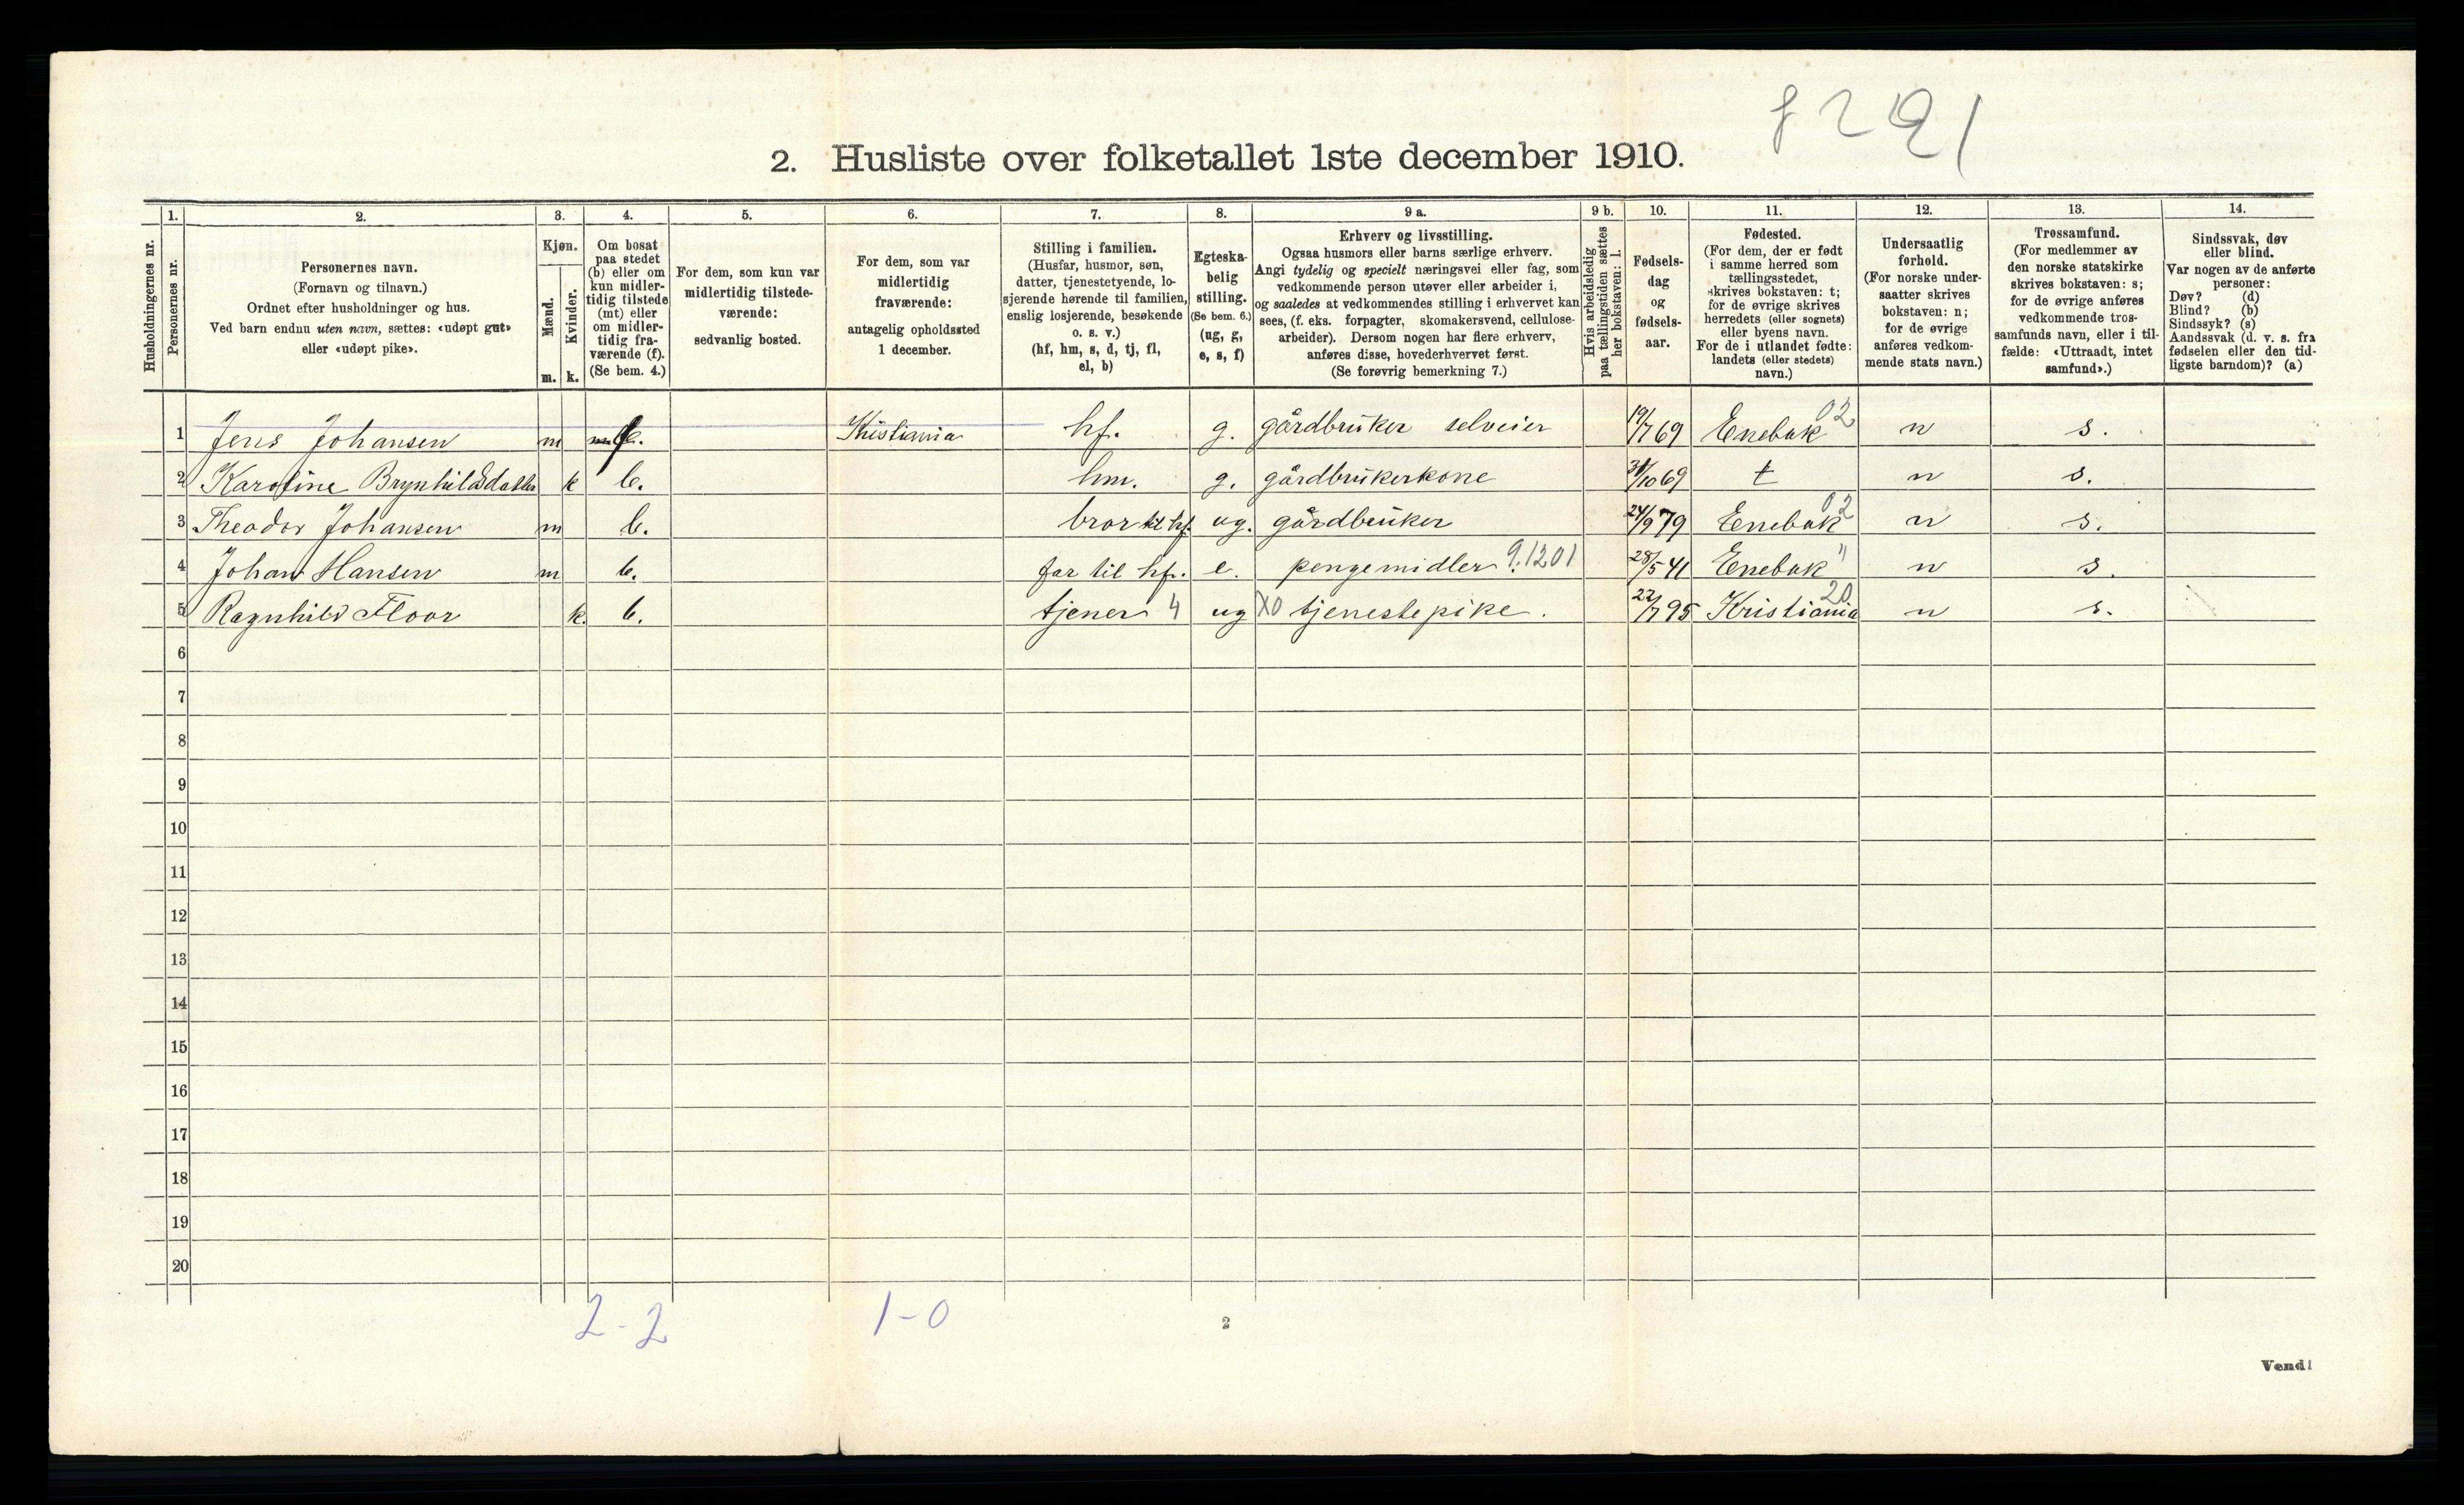 2. Husliste over folketallet 1ste december 1910.
1. 2. 3. 4. 5. 6. 7. 8. 9 a. 9 b. 10. 11. 12. 13. 14.
Husholdningernes nr.
Personernes nr.
Personernes navn.
(Fornavn og tilnavn.)
Ordnet efter husholdninger og hus.
Ved barn endnu uten navn, sættes: «udøpt gut»
eller «udøpt pike».
Kjøn.
Mænd.
Kvinder.
m. k.
Om bosat
paa stedet
(b) eller om
kun midler-
tidig tilstede
(mt) eller
om midler-
tidig fra-
værende (f).
(Se bem. 4.)
For dem, som kun var
midlertidig tilstede-
værende:
sedvanlig bosted.
For dem, som var
midlertidig
fraværende:
antagelig opholdssted
1 december.
Stilling i familien.
(Husfar, husmor, søn,
datter, tjenestetyende, lo-
sjerende hørende til familien,
enslig losjerende, besøkende
o. s. v.)
(hf, hm, s, d, tj, fl,
el, b)
Egteska-
belig
stilling.
(Se bem. 6.)
(ug, g,
e, s, f)
Erhverv og livsstilling.
Ogsaa husmors eller barns særlige erhverv.
Angi tydelig og specielt næringsvei eller fag, som
vedkommende person utøver eller arbeider i,
og saaledes at vedkommendes stilling i erhvervet kan
sees, (f. eks. forpagter, skomakersvend, cellulose-
arbeider). Dersom nogen har flere erhverv,
anføres disse, hovederhvervet først.
(Se forøvrig bemerkning 7.)
Hvis arbeidsledig
paa tællingstiden sættes
her bokstaven: l.
Fødsels-
dag
og
fødsels-
aar.
Fødested.
(For dem, der er født
i samme herred som
tællingsstedet,
skrives bokstaven: t;
for de øvrige skrives
herredets (eller sognets)
eller byens navn.
For de i utlandet fødte:
landets (eller stedets)
navn.)
Undersaatlig
forhold.
(For norske under-
saatter skrives
bokstaven: n;
for de øvrige
anføres vedkom-
mende stats navn.)
Trossamfund.
(For medlemmer av
den norske statskirke
skrives bokstaven: s;
for de øvrige anføres
vedkommende tros-
samfunds navn, eller i til-
fælde: «Uttraadt, intet
samfund».)
Sindssvak, døv
eller blind.
Var nogen av de anførte
personer:
Døv? (d)
Blind? (b)
Sindssyk? (s)
Aandssvak (d. v. s. fra
fødselen eller den tid-
ligste barndom)? (a)
1 Jens Johansen m f. Kristiania hf. g. gårdbruker selveier 19/7 69 Enebak 02 n s.
2 Karoline Brynhildsdatter k b. hm. g. gårdbrukerkone 31/10 69 t n s.
3 Theodor Johansen m b. bror til hf. ug. gårdbruker 24/9 79 Enebak 02 n s.
4 Johan Hansen m b. far til hf. e. pengemidler 9.1201 28/5 41 Enebak " n s.
5 Ragnhild Floor k. b. tjener 4 ug X0 tjenestepike. 22/7 95 Kristiania 20 n s.
6
7
8
9
10
11
12
13
14
15
16
17
18
19
20
2-2 1-0
2
Vend!